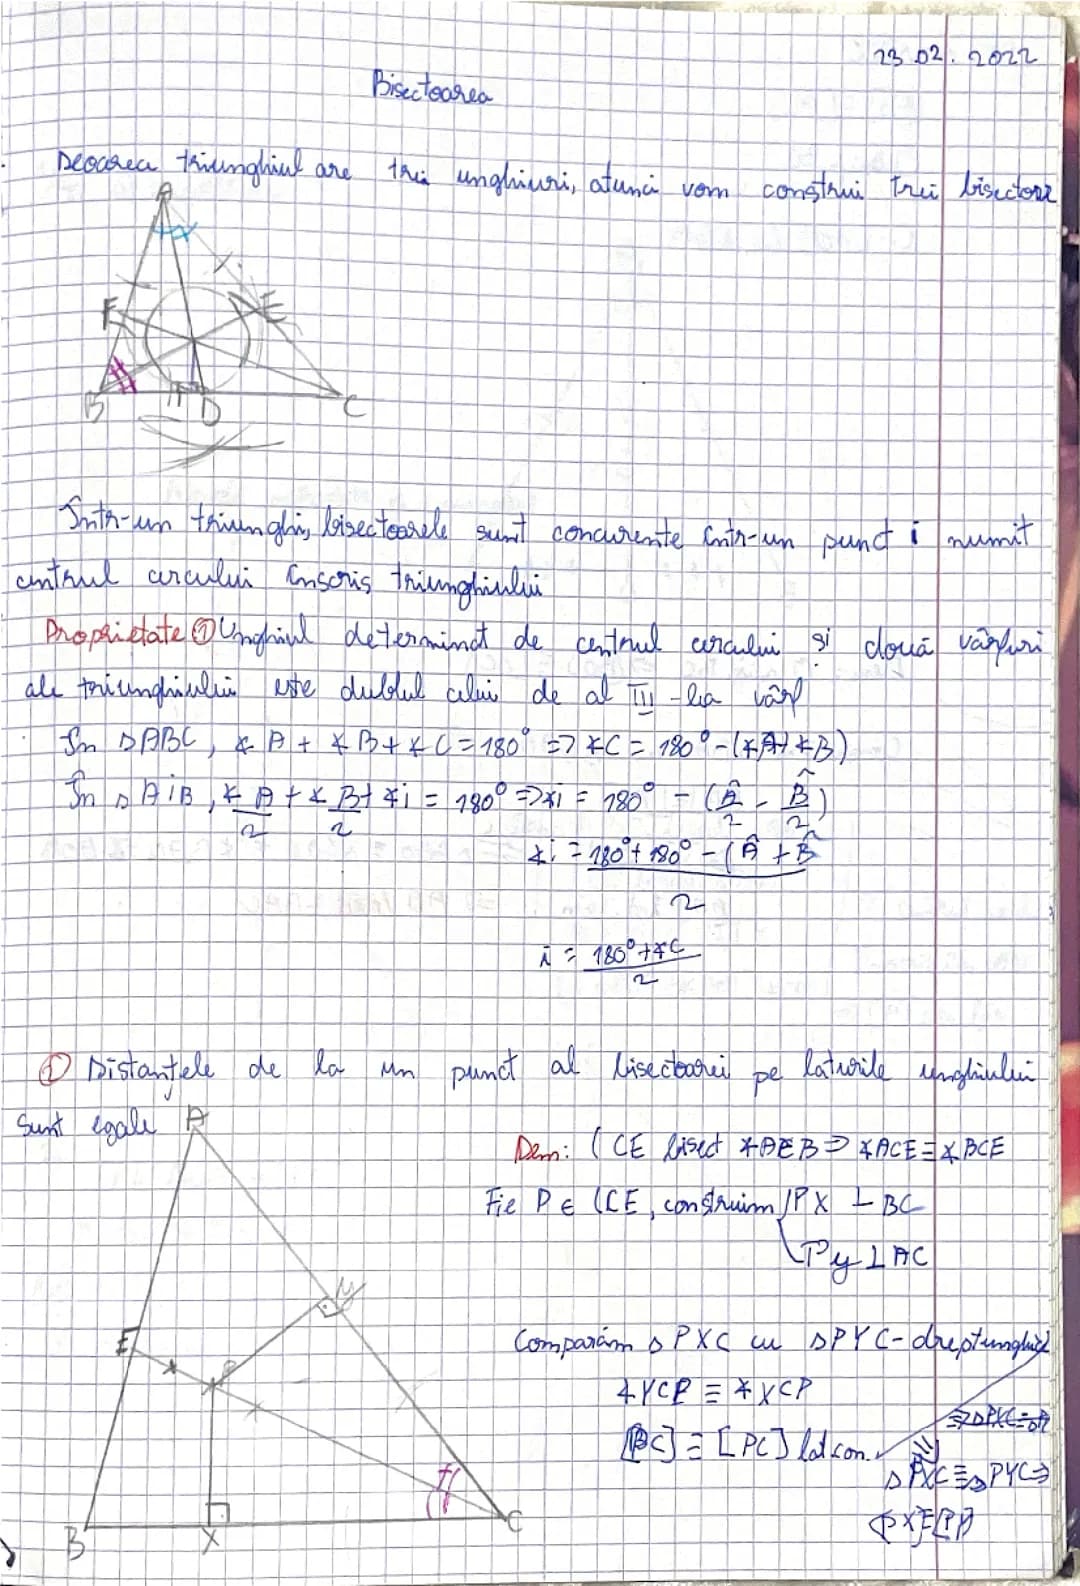 23.02.2022
Bisectoarea
Deoarea triunghiul are trei unghiuri, atunci vom construi trei bisectoare
A
F E
B D C
Într-un triunghi, bisectoarele sunt concurente într-un punct i numit
centrul cercului înscris triunghiului
Proprietate ① Unghiul determinat de centrul cercului și două vârfuri
ale triunghiului este dublul celui de al III-lea vârf
În △ABC, ∢A + ∢B + ∢C = 180° => ∢C = 180° - (∢A + ∢B)
În △AiB, ∢A/2 + ∢B/2 + ∢i = 180° => ∢i = 180° - (Â/2 - B̂/2)
∢i = (180° + 180° - (Â + B̂)/2
i = (180° + ∢C)/2
① Distanțele de la un punct al bisectoarei pe laturile unghiului
sunt egale
A
Dem: (CE bisect ∢AEB => ∢ACE ≡ ∢BCE
Fie P ∈ (CE, construim PX ⊥ BC
Py ⊥ AC
y
E P
Comparăm △PXC cu △PYC - dreptunghic
∢YCP ≡ ∢XCP
[PC] ≡ [PC] lat com.
△PXC ≡ △PYC =>
B X C